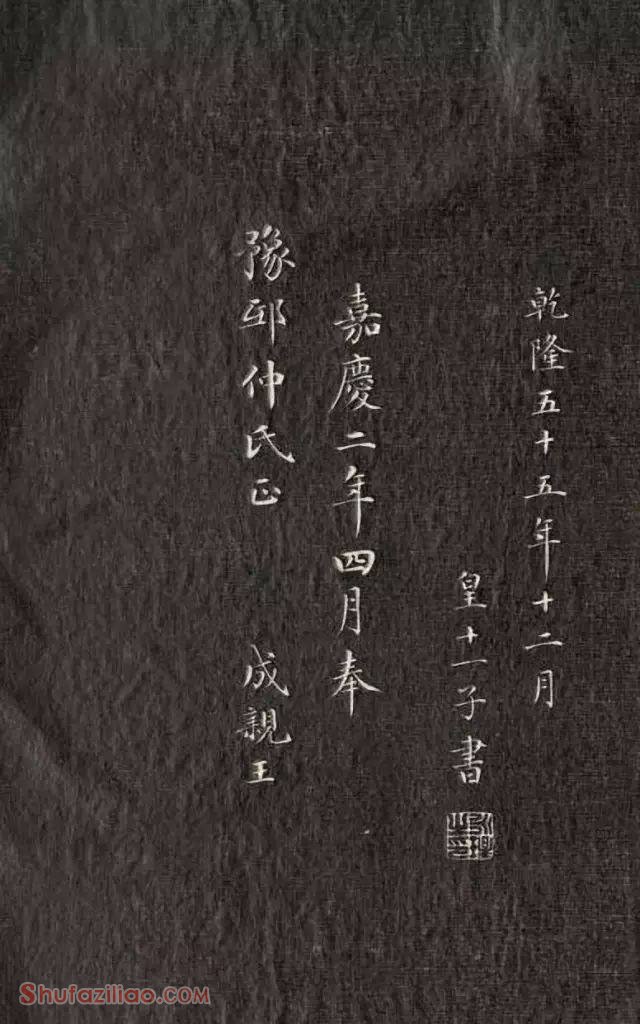 乾隆五十五年十二月
皇十一子書
嘉慶二年四月奉
豫邸仲氏正 成親王
Shufaziliao.com